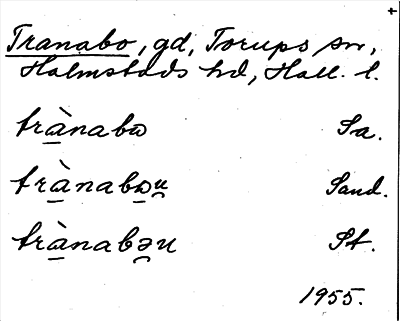 +
Tranabo, gd, Torups sn,
Halmstads hd, Hall. l.
trànabɷ Sa.
trànabɷu̯ Sand.
trànabəu St.
1955.